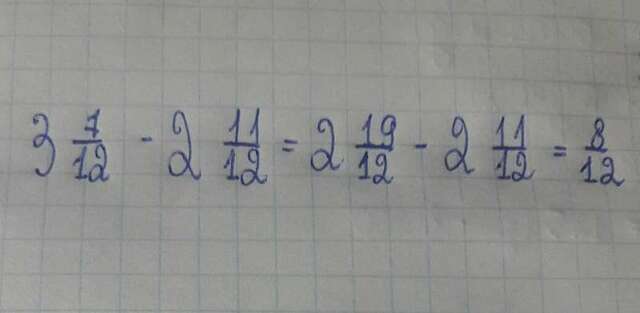 3 7/12 - 2 11/12 = 2 19/12 - 2 11/12 = 8/12